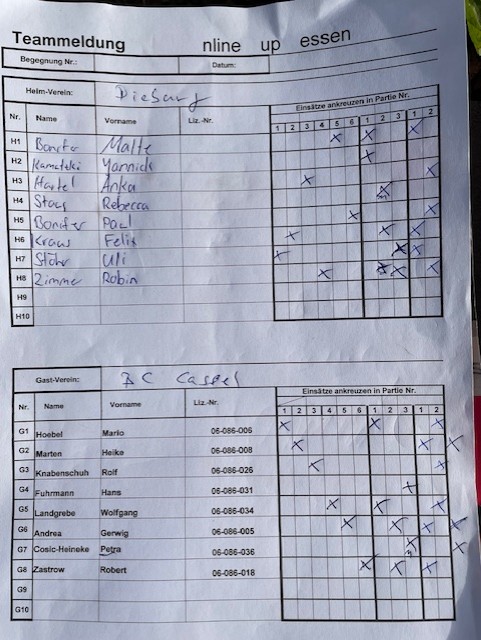 Teammeldung nline up essen
Begegnung Nr.: Datum:
Heim-Verein: Dieburg
Einsätze ankreuzen in Partie Nr.
Nr. Name Vorname Liz.-Nr. 1 2 3 4 5 6 1 2 3 1 2
H1 Bonifer Malte
H2 Yannick
H3 Hartel Anka
H4 Rebecca
H5 Bonifer Paul
H6 Kraus Felix
H7 Stöhr Uli
H8 Zimmer Robin
H9
H10
Gast-Verein: BC Cassel
Einsätze ankreuzen in Partie Nr.
Nr. Name Vorname Liz.-Nr. 1 2 3 4 5 6 1 2 3 1 2
G1 Hoebel Mario 06-086-006
G2 Marten Heike 06-086-008
G3 Knabenschuh Rolf 06-086-026
G4 Fuhrmann Hans 06-086-031
G5 Landgrebe Wolfgang 06-086-034
G6 Andrea Gerwig 06-086-005
G7 Cosic-Heineke Petra 06-086-036
G8 Zastrow Robert 06-086-018
G9
G10